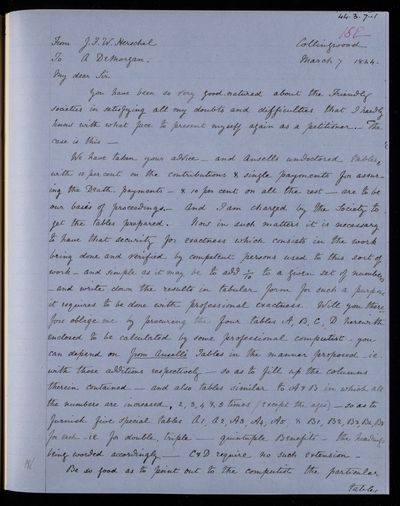 44.3.7.1
158
From J.F.W. Herschel
Collingwood
To A DeMorgan.
March 7 1844.
My dear Sir
You have been so very good natured about the Friendly
societies in satisfying all my doubts and difficulties that I hardly
know with what face to present myself again as a petitioner. The
case is this —
We have taken your advice — and Ansells undoctored tables,
with 10 per cent on the contributions & single payments for assur-
ing the Death payments — & 10 per cent on all the rest — are to be
our bases of proceedings. — And I am charged by the Society to
get the tables prepared. Now in such matters it is necessary
to have that security for exactness which consists in the work
being done and verified by competent persons used to this sort of
work — and simple as it may be to add 1/10 to a given set of numbers
— and write down the results in tabular form for such a purpose
it requires to be done with professional exactness. Will you there
fore oblige me by procuring the four tables A, B, C, D herewith
enclosed to be calculated by some professional computist you
can depend on from Ansells Tables in the manner proposed i.e.
with those additions respectively — so as to fill up the columns
therein contained — and also tables similar to A & B in which all
the numbers are increased, 2, 3, 4 & 5 times (except the ages) — so as to
furnish five special tables A1, A2, A3, A4, A5, & B1, B2, B3, B4, B5
for each i.e. for double, triple — quintuple Benefits — the headings
being worded accordingly — C & D require no such extension —
Be so good as to point out to the computist the particular
tables